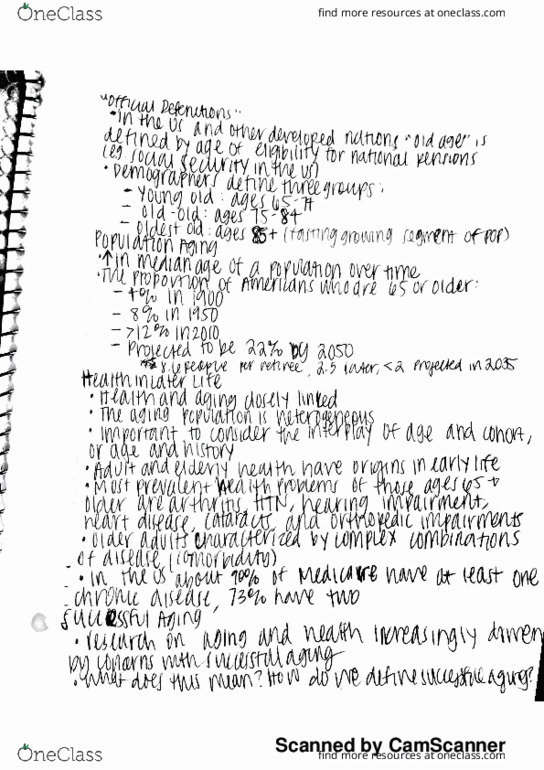 OneClass
find more resources at oneclass.com
"Official Defenitions"
• In the US and other developed nations "old age" is
defined by age of eligibility for national pensions
(eg social security in the US)
• Demographers define three groups:
- Young old: ages 65-74
- old-old: ages 75-84
- oldest old: ages 85+ (fasting growing segment of pop)
Population Aging
• ↑ in median age of a population over time
• The proportion of Americans who are 65 or older:
- 4% in 1900
- 8% in 1950
- >12% in 2010
- Projected to be 22% by 2050
8.6 people per retiree, 2.5 later, <2 projected in 2035
Health in later Life
• Health and aging closely linked
• The aging population is heterogeneous
• Important to consider the interplay of age and cohort,
or age and history
• Adult and elderly health have origins in early life
• Most prevalent health problems of those ages 65 +
older are arthritis, HTN, hearing impairment,
heart disease, cataracts, and orthopedic impairments
• older adults characterized by complex combinations
of disease (comorbidity)
• In the US about 90% of Medicare have at least one
chronic disease, 73% have two
Successful Aging
• research on aging and health increasingly driven
by concerns with successful aging
• What does this mean? How do we define successful aging?
Scanned by CamScanner
OneClass
find more resources at oneclass.com